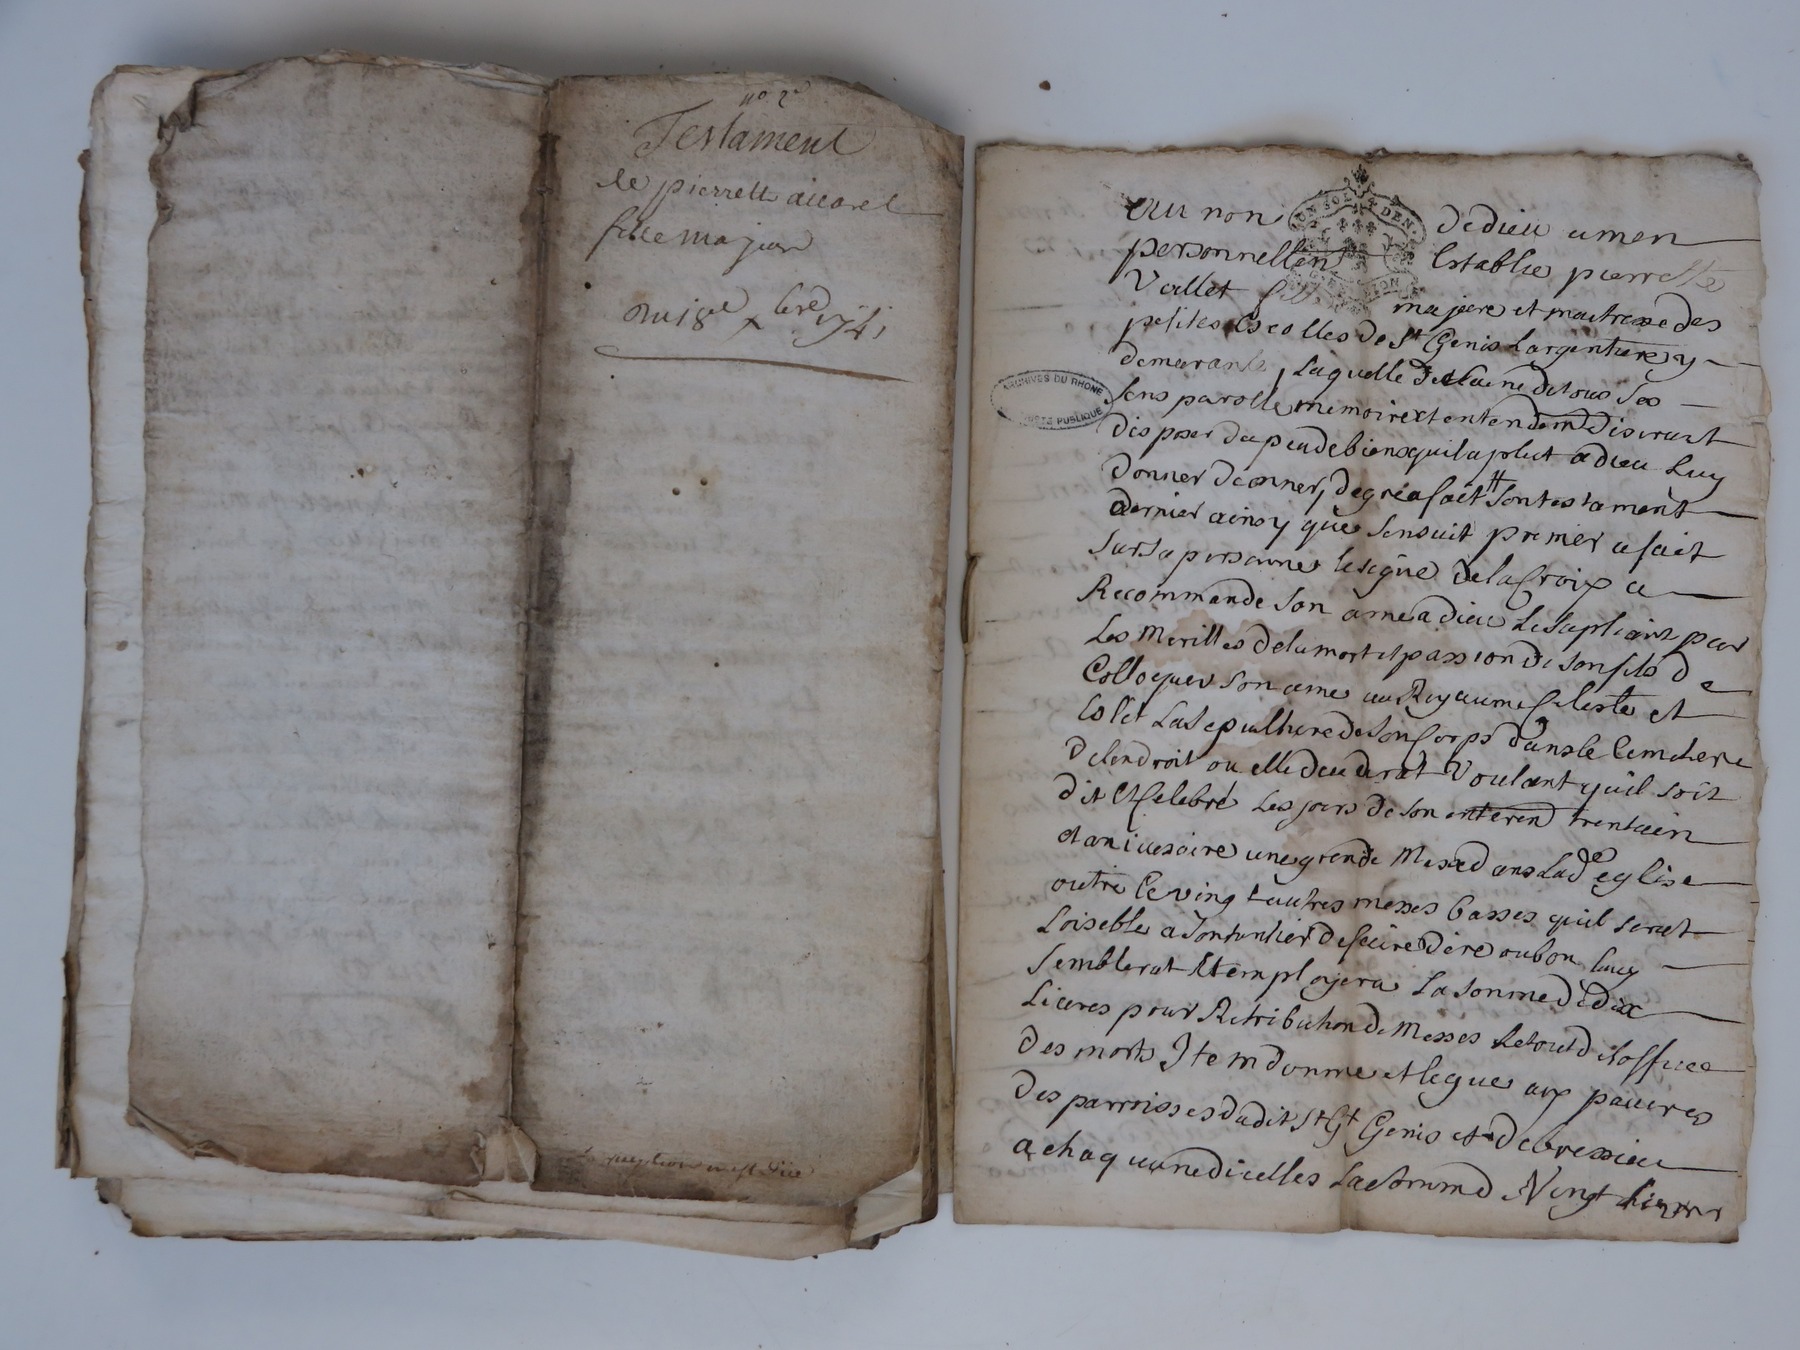 no. 2e
Testament
de pierrette
fille majeure
du 18e xbre 1741
Au nom de dieu amen
personnellemt Establie pierrette
Viallet fille majeure et maitresse des
petites Escolles de St Genis Largentiere y
demeurante, Laquelle de tous Ses
Sens parolle memoire et entendemt
disposer du peu de biens quil a plut a dieu Luy
donner de gré a fait Son testament
dernier ainsy que Sensuit premier a fait
Sur Sa personne le signe de la Croix a
Recommande Son ame a dieu Le Supliant par
Les Merittes de la mort et passion de Son fils de
Colloquer Son ame au Royaume Celeste et
Eslit La Sepulthure de Son Corps dans le Cemetiere
de lendroit ou elle decederat Voulant quil soit
dit Et Celebré Les jours de Son enteremt trentain
et aniversaire une grande Messe dans Lade eglise
outre Ce vingt autres messes basses quil serat
Loiseble a Son heritier de faire dire ou bon Luy
Semblerat Et employera La Somme de dix
Livres pour Retribution de Messes Le tout de loffice
des morts Item donne et legue aux pauvres
des parroisses dudit St Genis et de bressieu
a chaquune dicelles La Somme de Vingt Livres
ARCHIVES DU RHONE